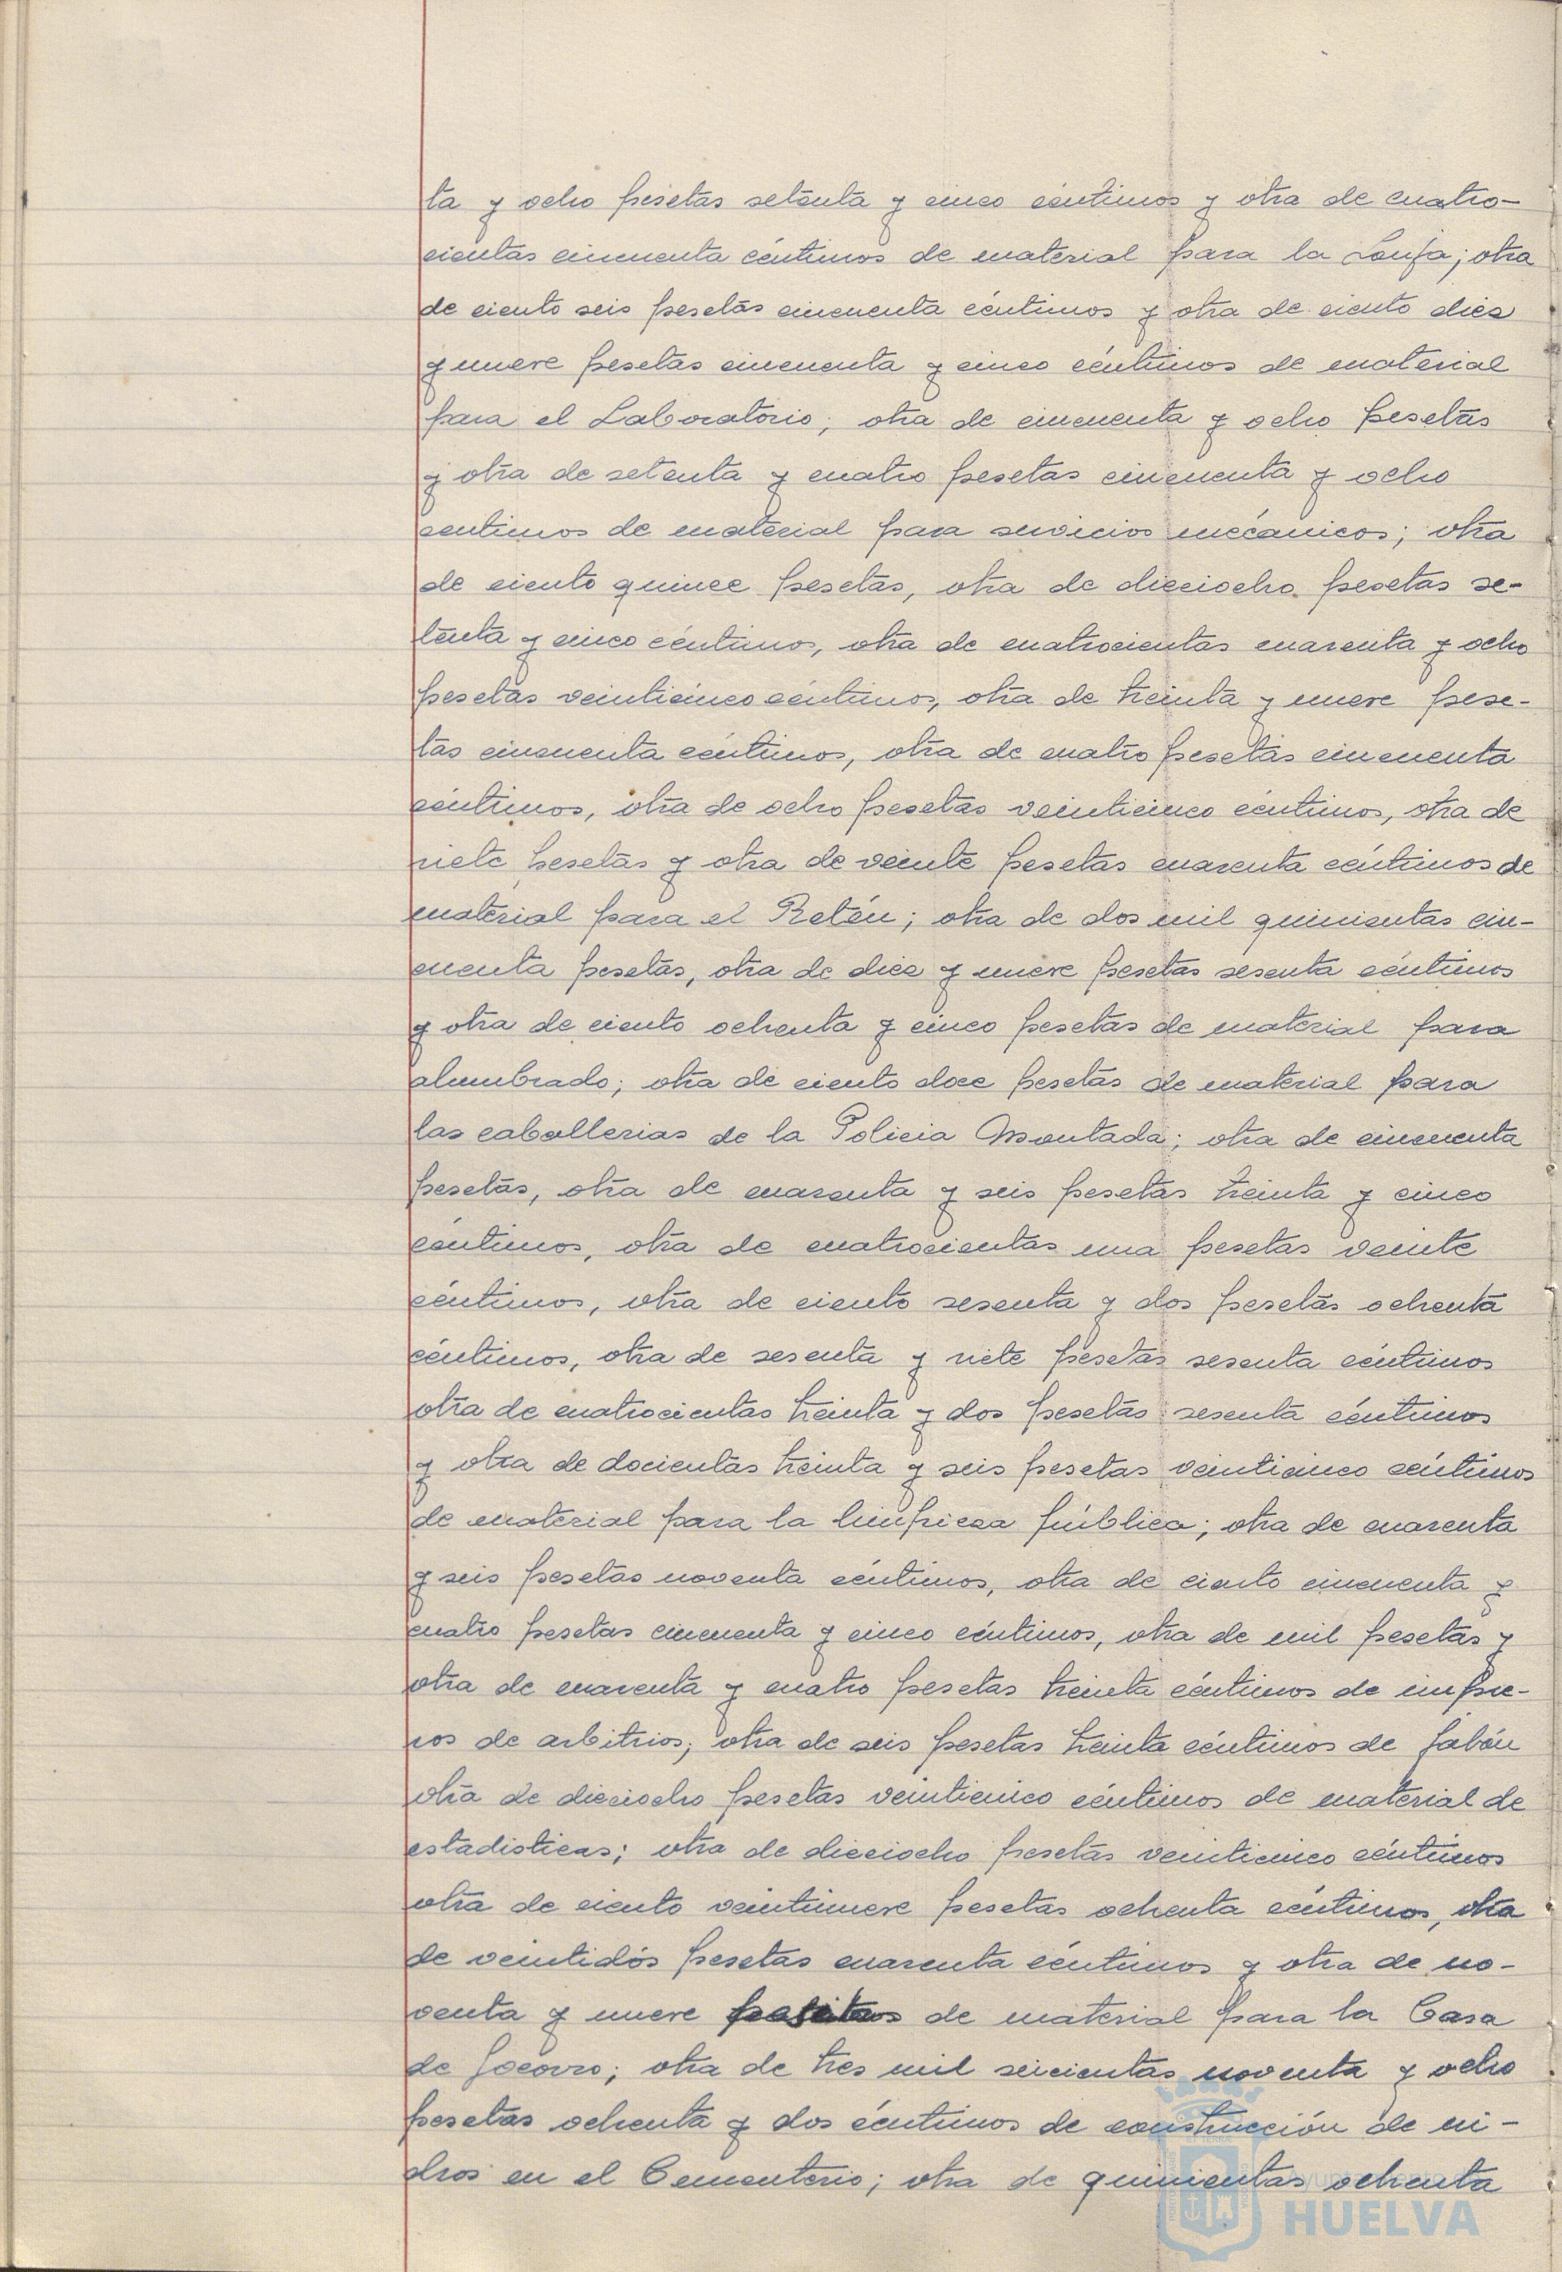 ta y ocho pesetas setenta y cinco céntimos y otra de cuatro-
cientas cincuenta céntimos de material para la Lonja; otra
de ciento seis pesetas cincuenta céntimos y otra de ciento diez
y nueve pesetas cincuenta y cinco céntimos de material
para el Laboratorio; otra de cincuenta y ocho pesetas
y otra de setenta y cuatro pesetas cincuenta y ocho
centimos de material para servicios mecánicos; otra
de ciento quince pesetas, otra de dieciocho pesetas se-
tenta y cinco céntimos, otra de cuatrocientas cuarenta y ocho
pesetas veinticinco céntimos, otra de treinta y nueve pese-
tas cincuenta céntimos, otra de cuatro pesetas cincuenta
céntimos, otra de ocho pesetas veinticinco céntimos, otra de
siete pesetas y otra de veinte pesetas cuarenta céntimos de
material para el Retén; otra de dos mil quinientas cin-
cuenta pesetas, otra de diez y nueve pesetas sesenta céntimos
y otra de ciento ochenta y cinco pesetas de material para
alumbrado; otra de ciento doce pesetas de material para
las caballerias de la Policia Montada; otra de cincuenta
pesetas, otra de cuarenta y seis pesetas treinta y cinco
céntimos, otra de cuatrocientas una pesetas veinte
céntimos, otra de ciento sesenta y dos pesetas ochenta
céntimos, otra de sesenta y siete pesetas sesenta céntimos
otra de cuatrocientas treinta y dos pesetas sesenta céntimos
y otra de docientas treinta y seis pesetas veinticinco céntimos
de material para la limpieza pública; otra de cuarenta
y seis pesetas noventa céntimos, otra de ciento cincuenta y
cuatro pesetas cincuenta y cinco céntimos, otra de mil pesetas y
otra de cuarenta y cuatro pesetas treinta céntimos de impre-
sos de arbitrios; otra de seis pesetas treinta céntimos de jabón
otra de dieciocho pesetas veinticinco céntimos de material de
estadisticas; otra de dieciocho pesetas veinticinco céntimos
otra de ciento veintinueve pesetas ochenta céntimos, otra
de veintidós pesetas cuarenta céntimos y otra de no-
venta y nueve pesetas de material para la Casa
de Socorro; otra de tres mil seicientas noventa y ocho
pesetas ochenta y dos céntimos de construcción de ni-
chos en el Cementerio; otra de quinientas ochenta
Ayuntamiento
HUELVA